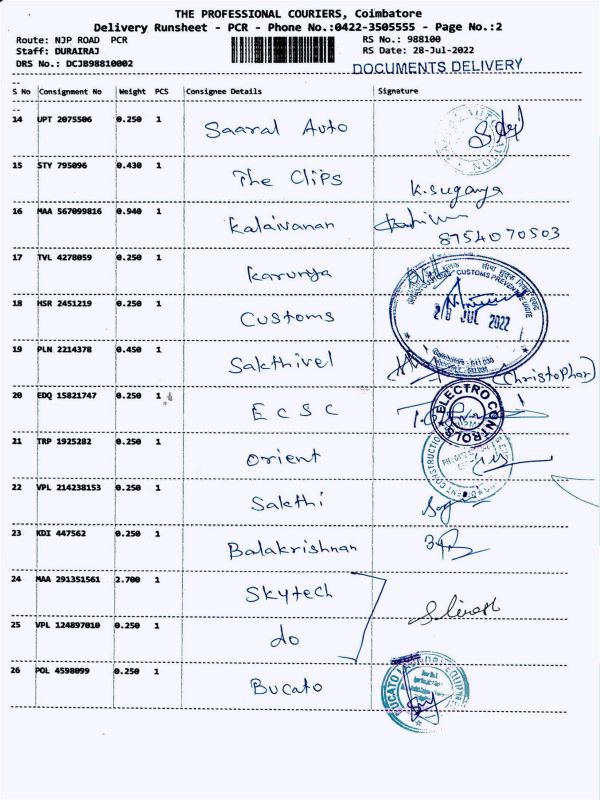 THE PROFESSIONAL COURIERS, Coimbatore
Delivery Runsheet - PCR - Phone No.:0422-3505555 - Page No.:2
Route: NJP ROAD PCR
RS No.: 988100
Staff: DURAIRAJ
RS Date: 28-Jul-2022
DRS No.: DCJB98810002
DOCUMENTS DELIVERY
S No Consignment No Weight PCS Consignee Details Signature
14 UPT 2075506 0.250 1 Saaral Auto
15 STY 795096 0.430 1 The Clips K.Suganya
16 MAA 567099816 0.940 1 Kalaivanan
8754070503
17 TVL 4278059 0.250 1 Karunya
18 HSR 2451219 0.250 1 Customs
CUSTOMS PREVENTIVE
28 JUL 2022
19 PLN 2214378 0.450 1 Sakthivel (Christopher)
20 EDQ 15821747 0.250 1 ECSC
ELECTRO CONTROLS
21 TRP 1925282 0.250 1 Orient
22 VPL 214238153 0.250 1 Sakthi
23 KDI 447562 0.250 1 Balakrishnan
24 MAA 291351561 2.700 1 Skytech
25 VPL 124897010 0.250 1 do
26 POL 4598099 0.250 1 Bucato
BUCATO LAUNDRY EQUIPMENT